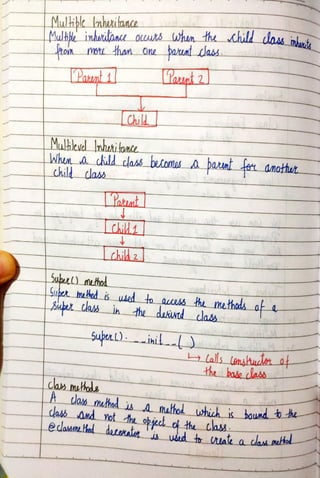 Multiple Inheritance
Multiple inheritance occurs when the child class inherits
from more than one parent class.
Parent 1 Parent 2
Child
Multilevel Inheritance
When a child class becomes a parent for another
child class
Parent
Child 1
Child 2
Super() method
Super method is used to access the methods of a
super class in the derived class.
super().__init__( )
↳ Calls constructor of
the base class
class methods
A class method is a method which is bound to the
class and not the object of the class.
@classmethod decorator is used to create a class method